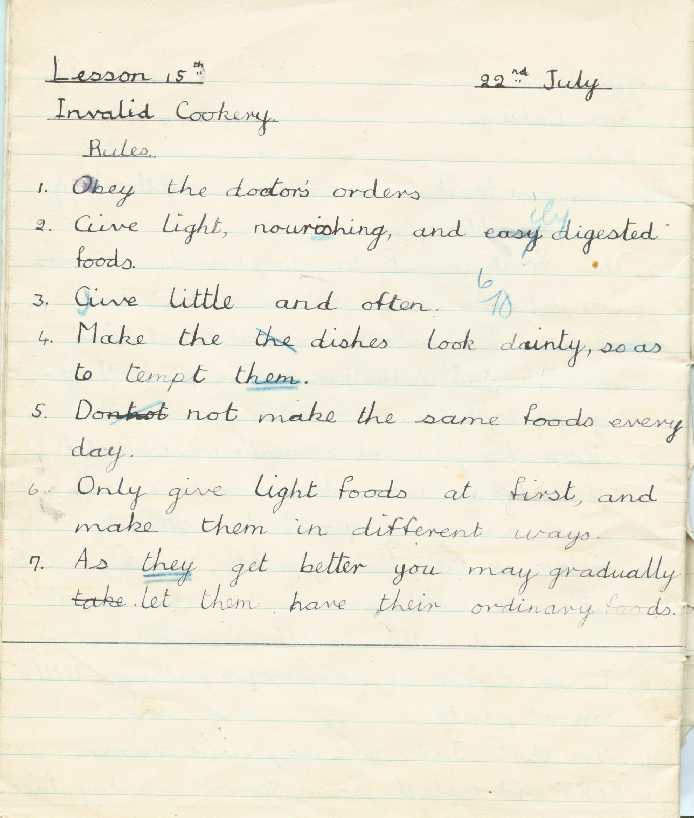 Lesson 15th 22nd July
Invalid Cookery.
Rules.
1. Obey the doctor's orders
ily
2. Give light, nourishing, and easy digested
foods.
6/10
3. Give little and often.
4. Make the the dishes look dainty, so as
to tempt them.
5. Do not make the same foods every
day.
6. Only give light foods at first, and
make them in different ways.
7. As they get better you may gradually
take let them have their ordinary foods.